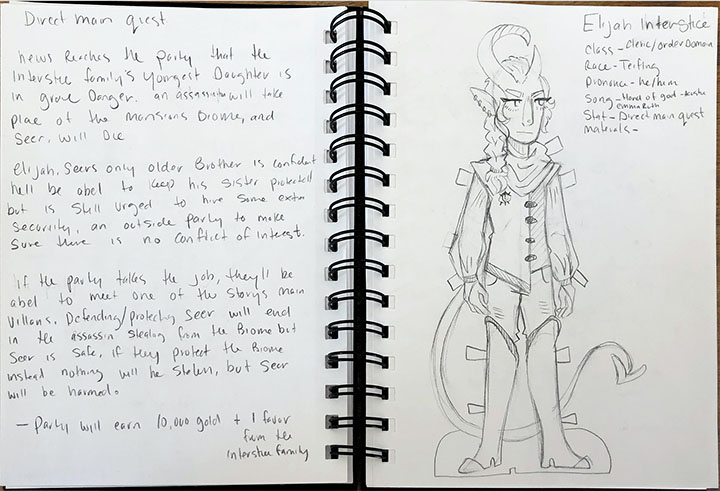 Direct main quest
news Reaches the party that the
Interstice family's Yongest Daughter is
in grave Danger. an assassin will take
place of the mansions Biome, and
Seer, will Die
Elijah, Seers only older Brother is confident
hell be abel to keep his sister protected
but is Still urged to hire some extra
Security, an outside party to make
Sure there is no conflict of interest.
If the party takes the job, they'll be
abel to meet one of the Storys main
Villans. Defending/protecting Seer will end
in the assassin Stealing from the Biome but
Seer is Safe, if they protect the Biome
instead nothing will be Stolen, but Seer
will be harmed.
- Party will earn 10,000 gold + 1 favor
from the
Interstice family
Elijah Interstice
Class - Cleric/order Domain
Race - Teifling
Pronouns - he/him
Song - Hand of god -
Emma Ruth
Stat - Direct main quest
materials -